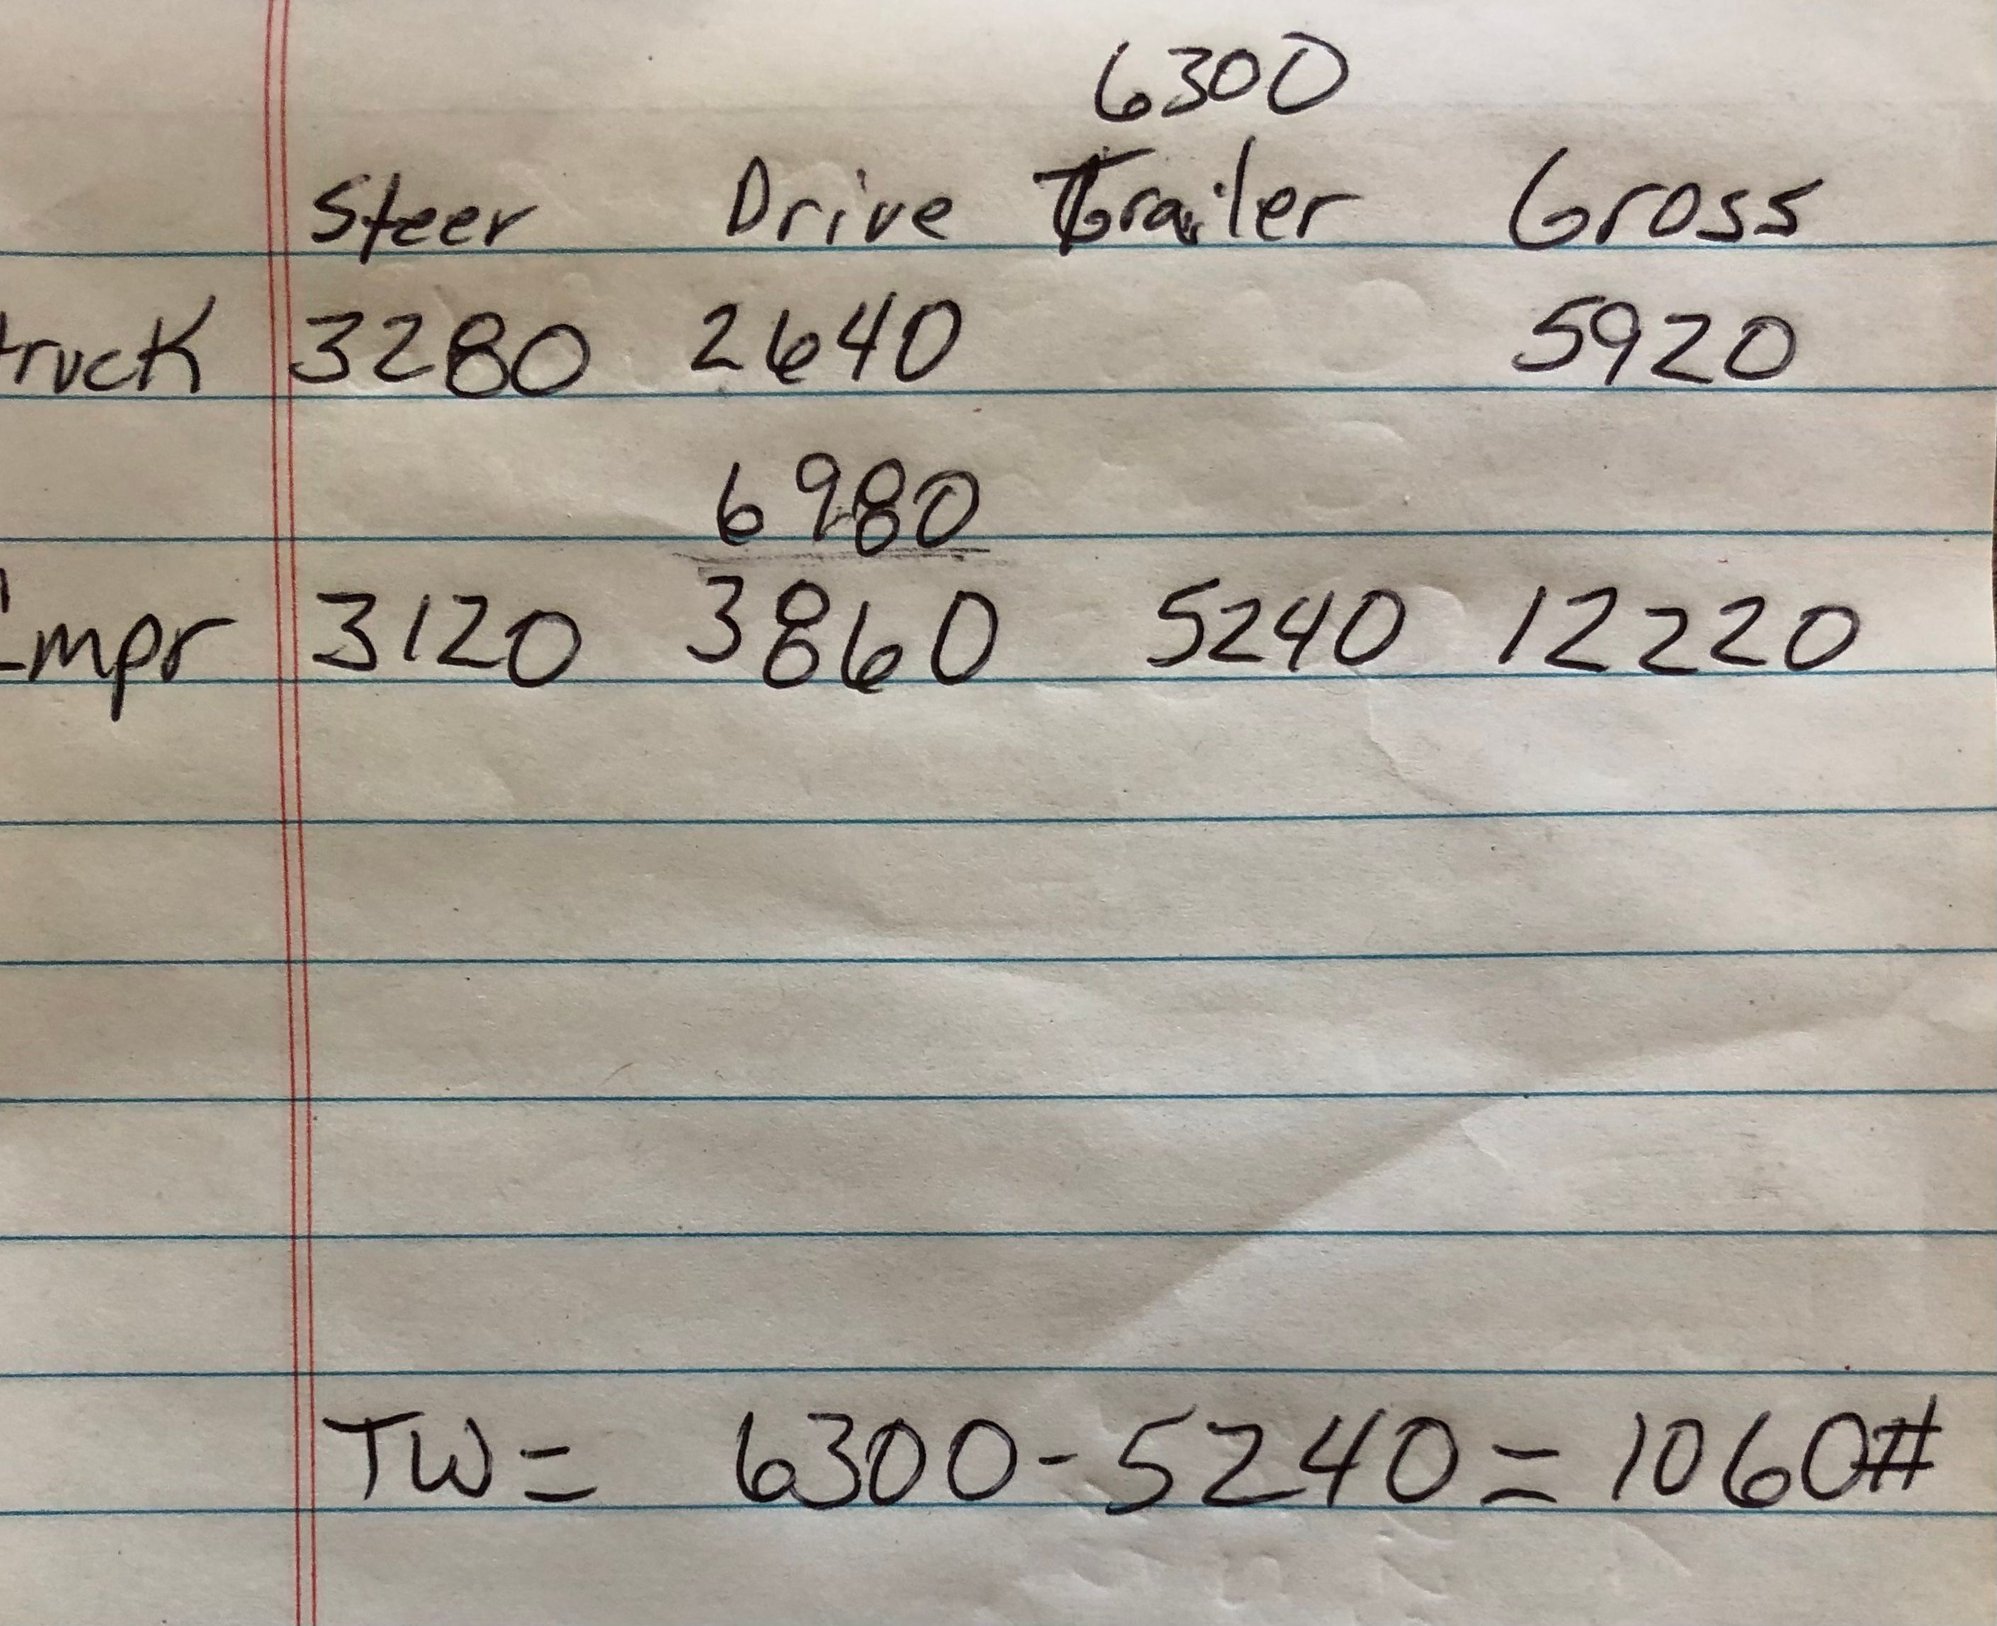 6300
Steer Drive Trailer Gross
truck 3280 2640 5920
6980
3120 3860 5240 12220
TW= 6300-5240=1060#